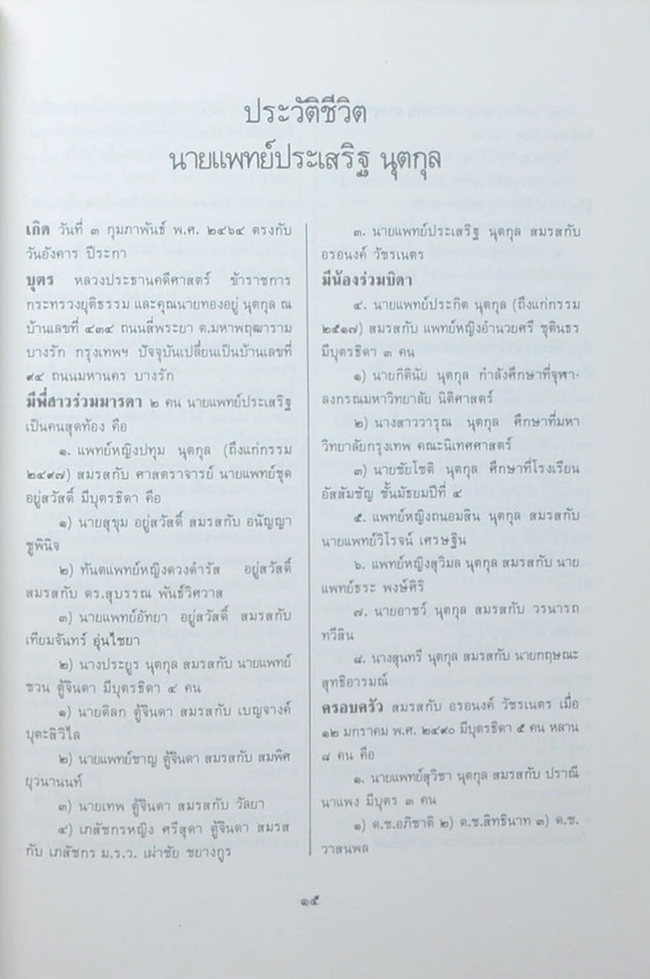 ประวัติชีวิต
นายแพทย์ประเสริฐ นุตกุล
เกิด วันที่ ๓ กุมภาพันธ์ พ.ศ. ๒๔๖๔ ตรงกับ
วันอังคาร ปีระกา
บุตร หลวงประธานคดีศาสตร์ ข้าราชการ
กระทรวงยุติธรรม และคุณนายทองอยู่ นุตกุล ณ
บ้านเลขที่ ๔๓๔ ถนนสี่พระยา ต.มหาพฤฒาราม
บางรัก กรุงเทพฯ ปัจจุบันเปลี่ยนเป็นบ้านเลขที่
๙๔ ถนนมหานคร บางรัก
มีพี่สาวร่วมมารดา ๒ คน นายแพทย์ประเสริฐ
เป็นคนสุดท้อง คือ
๑. แพทย์หญิงปทุม นุตกุล (ถึงแก่กรรม
๒๔๙๗) สมรสกับ ศาสตราจารย์ นายแพทย์ชุด
อยู่สวัสดิ์ มีบุตรธิดา คือ
๑) นายสุขุม อยู่สวัสดิ์ สมรสกับ อนัญญา
ชูพินิจ
๒) ทันตแพทย์หญิงดวงดำรัส อยู่สวัสดิ์
สมรสกับ ดร.สุบรรณ พันธ์วิศวาส
๓) นายแพทย์อัทยา อยู่สวัสดิ์ สมรสกับ
เทียมจันทร์ อุ่นไชยา
๒) นางประยูร นุตกุล สมรสกับ นายแพทย์
ชวน ตู้จินดา มีบุตรธิดา ๔ คน
๑) นายดิลก ตู้จินดา สมรสกับ เบญจางค์
บุตะสิวิไล
๒) นายแพทย์ชาญ ตู้จินดา สมรสกับ สมพิศ
ยุวนานนท์
๓) นายเทพ ตู้จินดา สมรสกับ วัลยา
๔) เภสัชกรหญิง ศรีสุดา ตู้จินดา สมรส
กับ เภสัชกร ม.ร.ว. เผ่าชัย ชยางกูร
๓. นายแพทย์ประเสริฐ นุตกุล สมรสกับ
อรอนงค์ วัชรเนตร
มีน้องร่วมบิดา
๔. นายแพทย์ประกิต นุตกุล (ถึงแก่กรรม
๒๕๑๗) สมรสกับ แพทย์หญิงอำนวยศรี ชุตินธร
มีบุตรธิดา ๓ คน
๑) นายกิตินัย นุตกุล กำลังศึกษาที่จุฬา-
ลงกรณมหาวิทยาลัย นิติศาสตร์
๒) นางสาววารุณ นุตกุล ศึกษาที่มหา
วิทยาลัยกรุงเทพ คณะนิเทศศาสตร์
๓) นายชัยโชติ นุตกุล ศึกษาที่โรงเรียน
อัสสัมชัญ ชั้นมัธยมปีที่ ๔
๕. แพทย์หญิงถนอมสิน นุตกุล สมรสกับ
นายแพทย์วิโรจน์ เศรษฐิน
๖. แพทย์หญิงสุวิมล นุตกุล สมรสกับ นาย
แพทย์ธระ พงษ์ศิริ
๗. นายอาชว์ นุตกุล สมรสกับ วรนารถ
ทวีสิน
๘. นางสุนทรี นุตกุล สมรสกับ นายกฤษณะ
สุทธิอารมณ์
ครอบครัว สมรสกับ อรอนงค์ วัชรเนตร เมื่อ
๑๒ มกราคม พ.ศ. ๒๔๙๐ มีบุตรธิดา ๕ คน หลาน
๘ คน คือ
๑. นายแพทย์สุวิชา นุตกุล สมรสกับ ปราณี
นาแพง มีบุตร ๓ คน
๑) ด.ช.อภิชาติ ๒) ด.ช.สิทธินาท ๓) ด.ช.
วาสนพล
๑๕